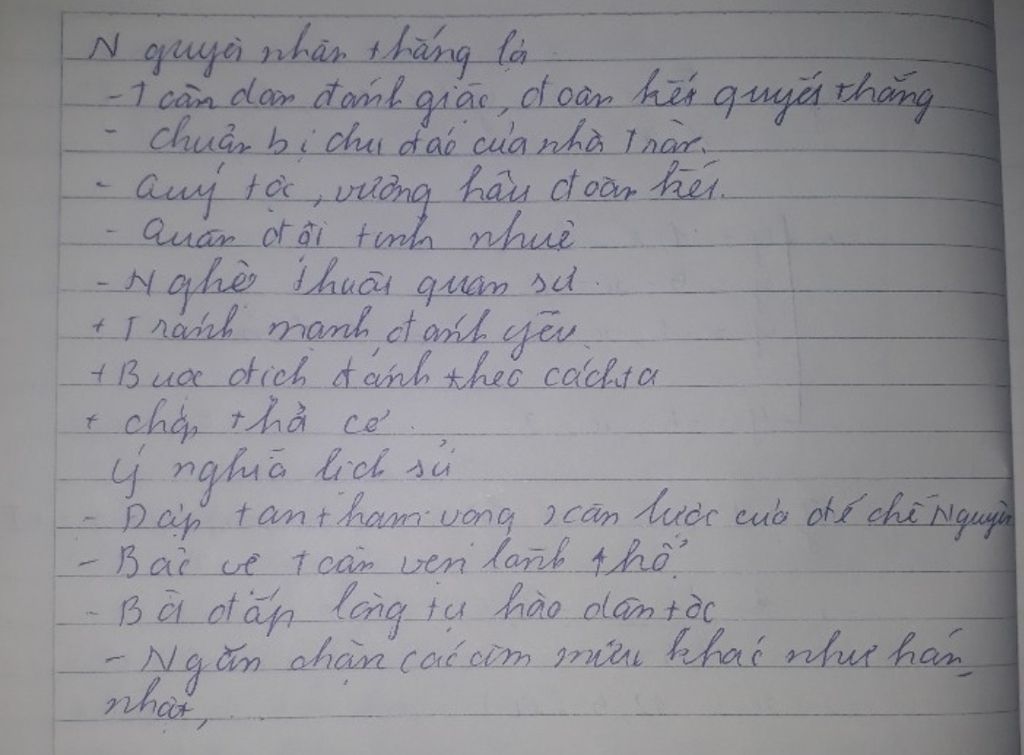 Nguyên nhân thắng là
- Toàn dân đánh giặc, đoàn kết quyết thắng
- Chuẩn bị chu đáo của nhà Trần.
- Quý tộc, vương hầu đoàn kết.
- Quân đội tinh nhuệ
- Nghệ thuật quan sự
+ Tránh mạnh đánh yếu
+ Buộc địch đánh theo cách ta
+ chớp thời cơ.
Ý nghĩa lịch sử
- Đập tan tham vọng xâm lược của đế chế Nguyên
- Bảo vệ toàn vẹn lãnh thổ.
- Bồi đắp lòng tự hào dân tộc
- Ngăn chặn các âm mưu khác như hán,
nhật,